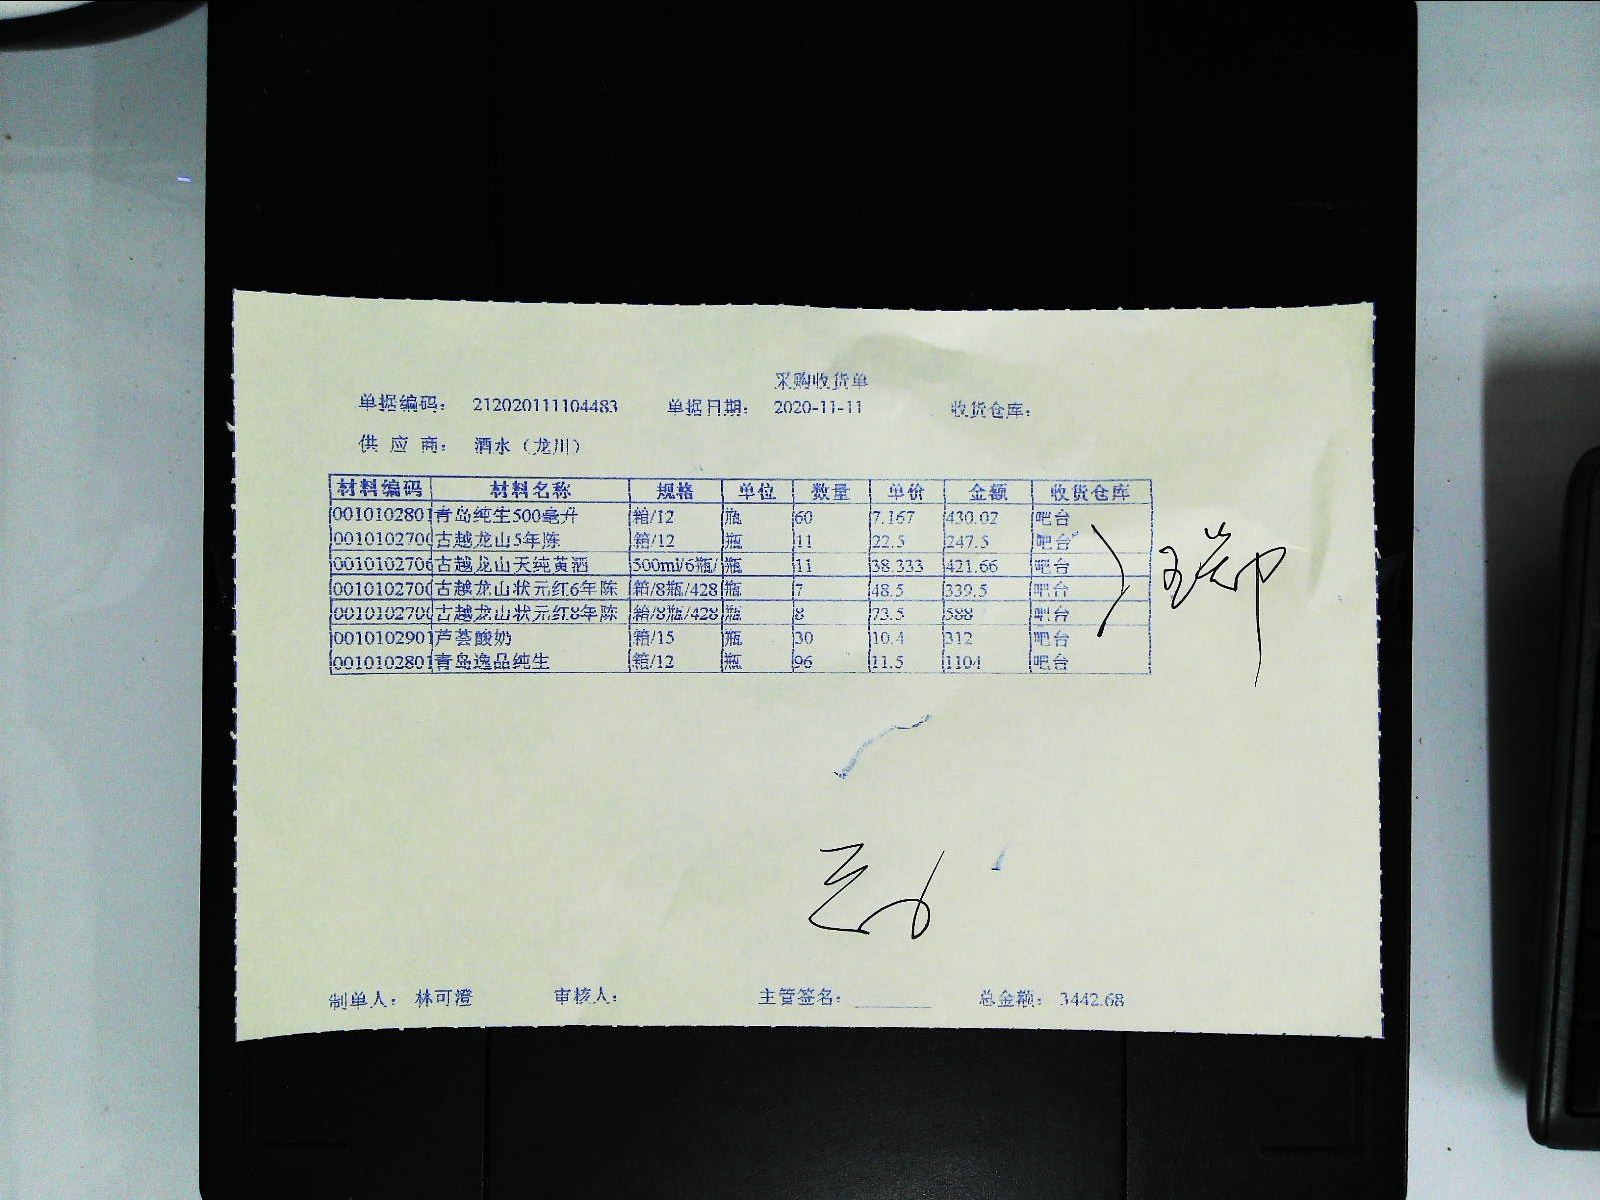 采购收货单
单据编码： 212020111104483 单据日期： 2020-11-11 收货仓库：
供 应 商： 酒水（龙川）
材料编码 材料名称 规格 单位 数量 单价 金额 收货仓库
0010102801 青岛纯生500毫升 箱/12 瓶 60 7.167 430.02 吧台
001010270 古越龙山5年陈 箱/12 瓶 11 22.5 247.5 吧台
001010270 古越龙山天纯黄酒 500ml/6瓶/ 瓶 11 38.333 421.66 吧台
001010270 古越龙山状元红6年陈 箱/8瓶/428 瓶 7 48.5 339.5 吧台
001010270 古越龙山状元红8年陈 箱/8瓶/428 瓶 8 73.5 588 吧台
0010102901 芦荟酸奶 箱/15 瓶 30 10.4 312 吧台
0010102801 青岛逸品纯生 箱/12 瓶 96 11.5 1104 吧台
制单人： 林可澄 审核人： 主管签名： 总金额： 3442.68